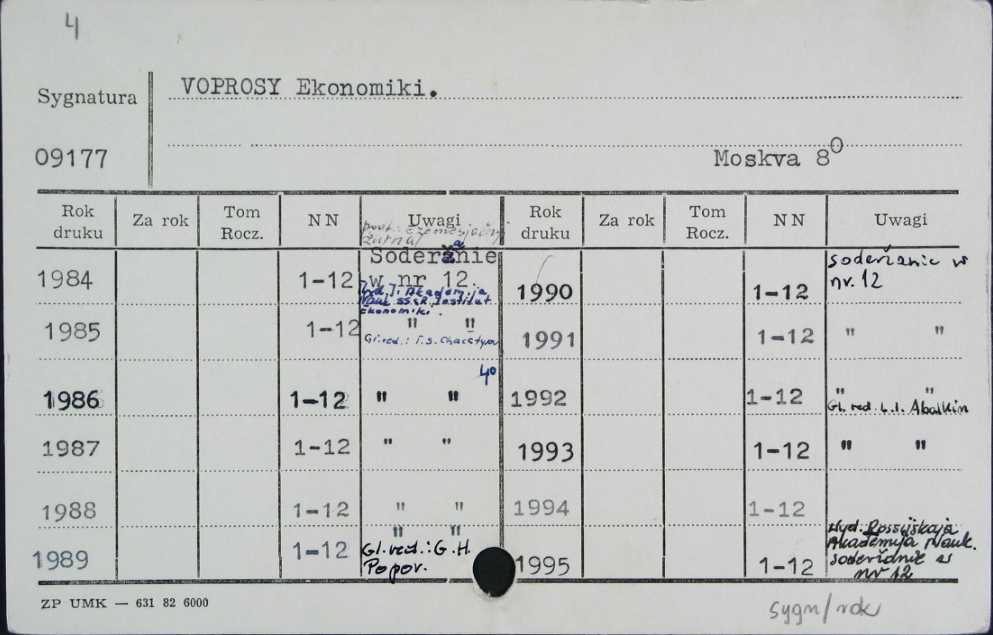 4
Sygnatura
VOPROSY Ekonomiki.
09177
Moskva 8⁰
Rok druku Za rok Tom Rocz. NN Uwagi Rok druku Za rok Tom Rocz. NN Uwagi
żurnal
1984 1-12 Soderžanie
w nr 12.
Izd.: Akademija
Nauk SSSR, Institut
Ekonomiki.
1990 1-12 soderžanie w
nr. 12
1985 1-12 " "
Gl. red.: T.S.
1991 1-12 " "
4⁰
1986 1-12 " "
1992 1-12 " "
Gl. red. L.I. Abalkin
1987 1-12 " "
1993 1-12 " "
1988 1-12 " "
1994 1-12
1989 1-12 " "
Gl. red.: G.H.
Popov.
1995 1-12 Wyd. Rossijskaja
Akademija Nauk.
soderžanie w
nr 12
ZP UMK — 631 82 6000
sygn/rok